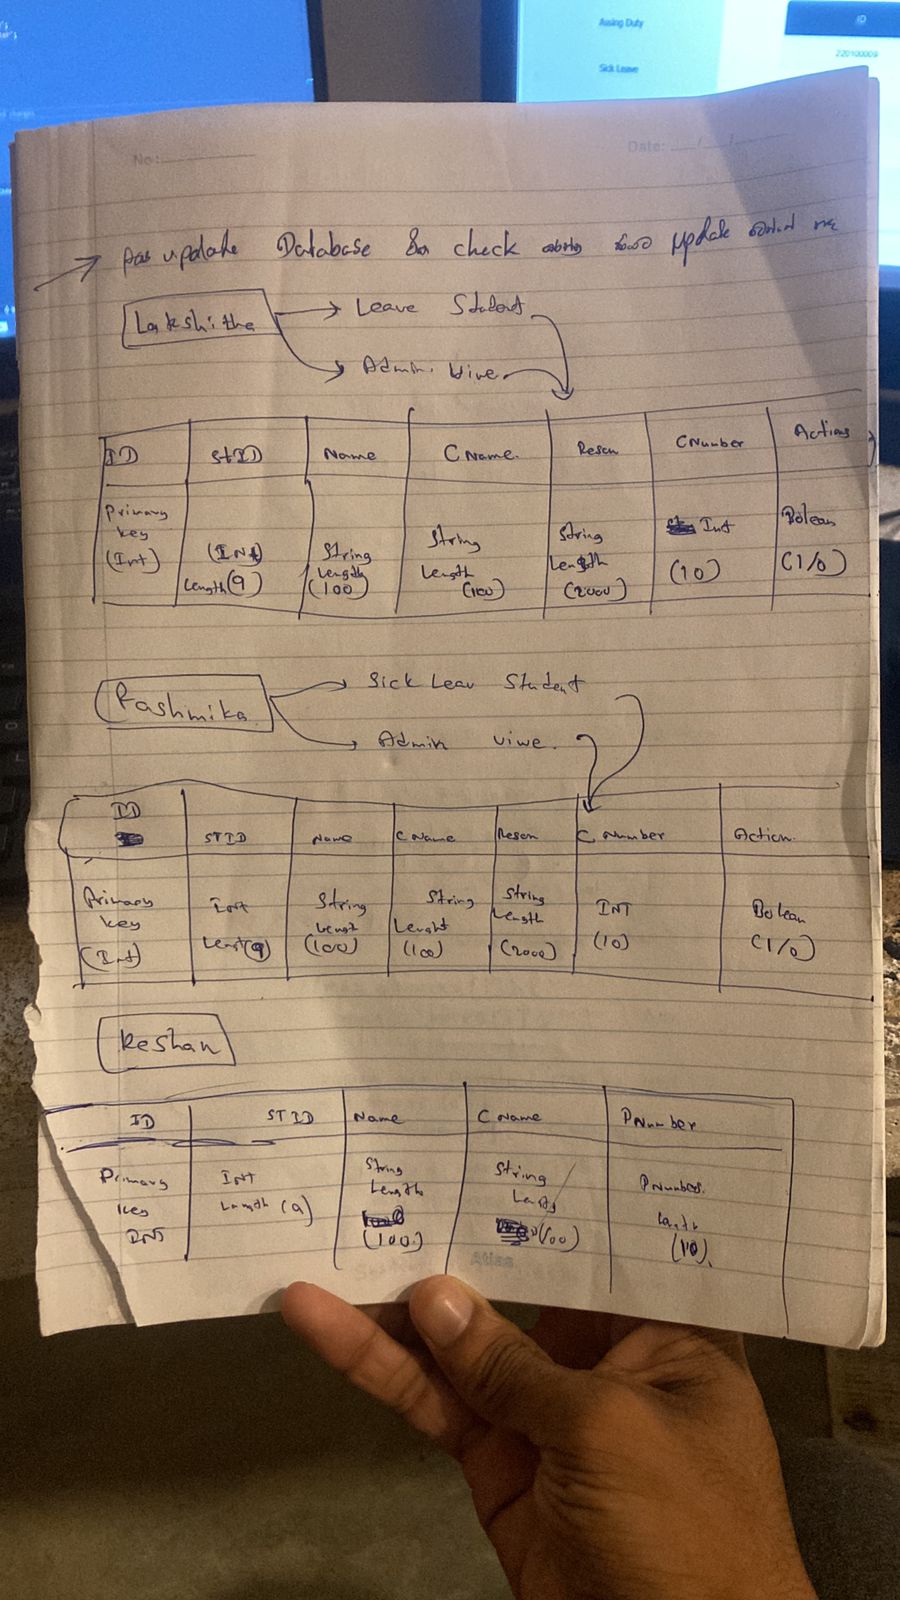 Assing Duty
ID
220100009
Sick Leave
No:
Date: / /
update Database check update
Lakshitha
Leave Student
Admin. Viwe.
ID STID Name C Name. Reson CNumber Actions
Primary key (Int) (INt) Length (9) String Length (100) String Length (100) String Length (2000) Int (10) Bolean (1/0)
Rashmika
Sick Leav Student
Admin viwe.
ID STID Name C Name Reson C Number Action.
Primary key (Int) Int (9) String (100) String Lenght (100) String Length (2000) INT (10) Bolean (1/0)
Reshan
ID STID Name C Name PNumber
Primary key INT INT Length (9) String Length (100) String (100) PNumber. (10).
Atlas